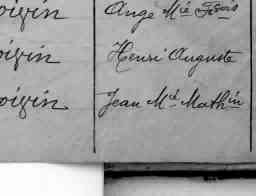 oizin Ange Mie Fçois
oizin Henri Auguste
oizin Jean Mie Mathin